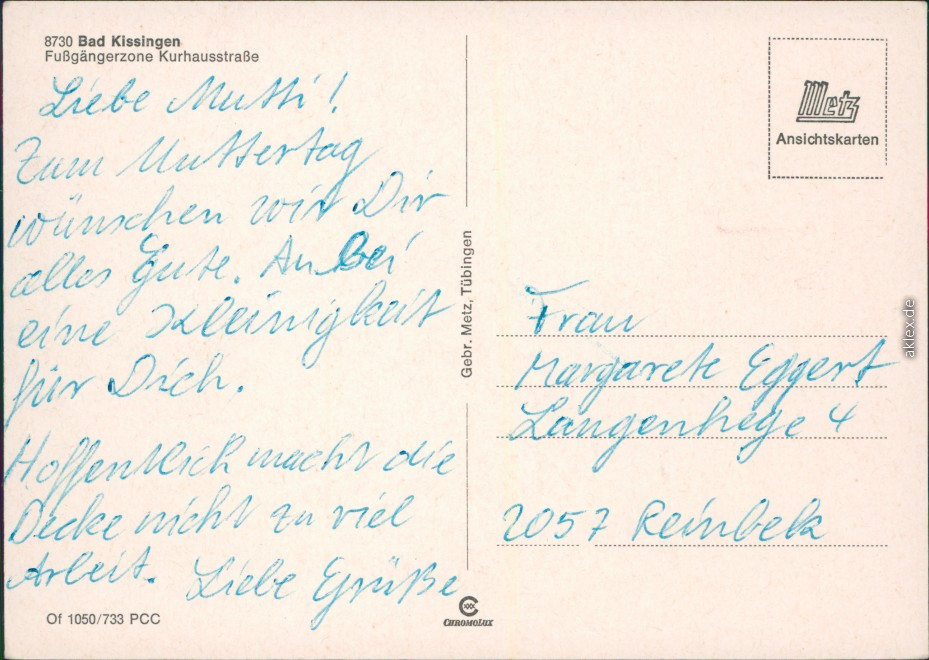 8730 Bad Kissingen
Fußgängerzone Kurhausstraße
Liebe Mutti!
Zum Muttertag
wünschen wir Dir
alles Gute. Anbei
eine Kleinigkeit
für Dich.
Hoffentlich macht die
Decke nicht zu viel
Arbeit. Liebe Grüße
Of 1050/733 PCC
Gebr. Metz, Tübingen
CHROMOLUX
Metz
Ansichtskarten
Frau
Margarete Eggert
Langenhege 4
2057 Reinbek
aklex.de